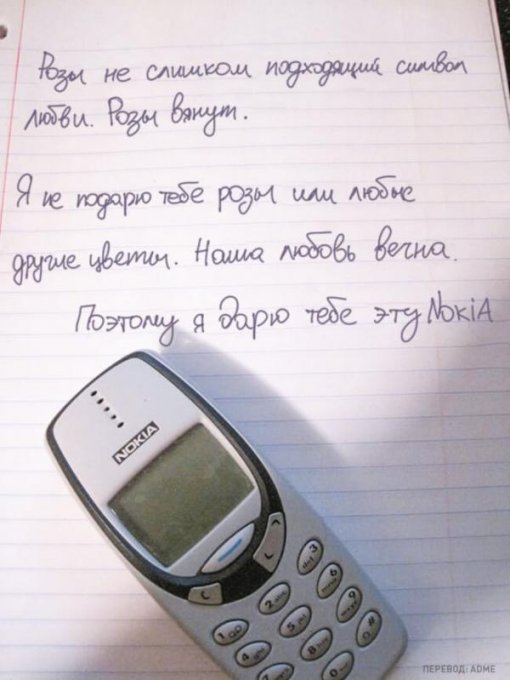 Розы не слишком подходящий символ
любви. Розы вянут.
Я не подарю тебе розы или любые
другие цветы. Наша любовь вечна.
Поэтому я дарю тебе эту NokiA
NOKIA
C
1
2 abc
3 def
4 ghi
5 jkl
6 mno
7
8
9
0
#
ПЕРЕВОД: ADME